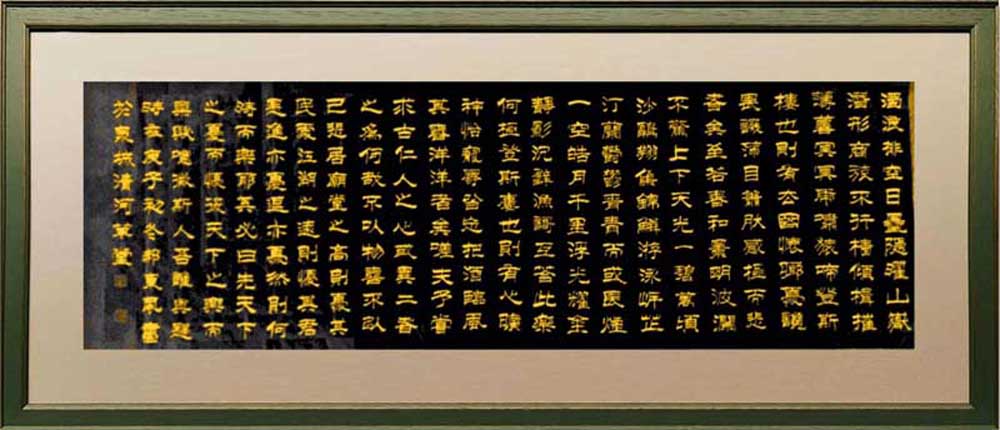 濁浪排空日星隱耀山嶽
潛形商旅不行檣傾楫摧
薄暮冥冥虎嘯猿啼登斯
樓也則有去國懷鄉憂讒
畏譏滿目蕭然感極而悲
者矣至若春和景明波瀾
不驚上下天光一碧萬頃
沙鷗翔集錦鱗游泳岸芷
汀蘭鬱鬱青青而或長煙
一空皓月千里浮光耀金
靜影沉璧漁歌互答此樂
何極登斯樓也則有心曠
神怡寵辱皆忘把酒臨風
其喜洋洋者矣嗟夫予嘗
求古仁人之心或異二者
之為何哉不以物喜不以
己悲居廟堂之高則憂其
民處江湖之遠則憂其君
是進亦憂退亦憂然則何
時而樂耶其必曰先天下
之憂而憂後天下之樂而
樂歟噫微斯人吾誰與歸
時在庚子初冬書
於泉城清河草堂